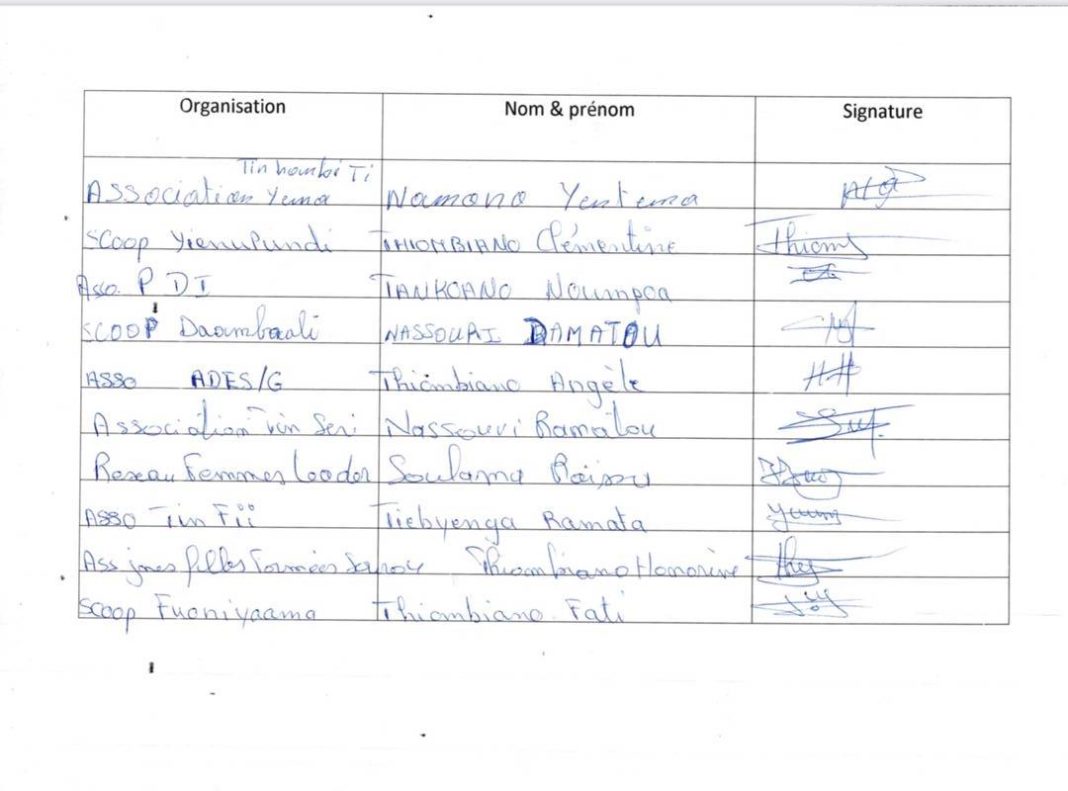 Organisation Nom & prénom Signature
Tin hambi Ti
Association Yema Namono Yentema
SCoop Yienupundi THIOMBIANO Clémentine Thiom
Asso. P DI TANKOANO Noumpoa
SCOOP Daambaali NASSOURI RAMATOU
ASSO ADES/G Thiombiano Angèle
Association Tin Seri Nassouri Ramatou
Reseau Femmes Leader Soulama
ASSO Tin Fii Tiebyenga Ramata
Ass jnes filles Formées Thiombiano Honorine
SCoop Fuoniyaama Thiombiano Fati